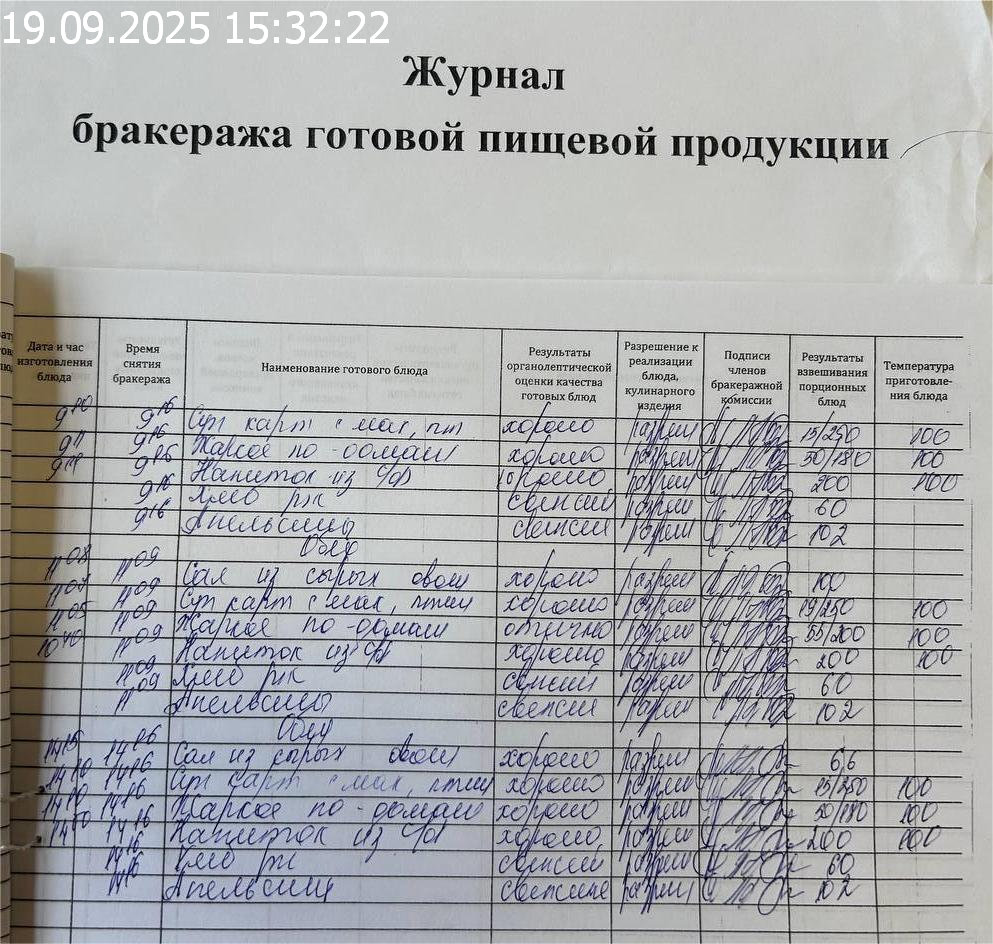 19.09.2025 15:32:22
Журнал
бракеража готовой пищевой продукции
Дата и час изготовления блюда Время снятия бракеража Наименование готового блюда Результаты органолептической оценки качества готовых блюд Разрешение к реализации блюда, кулинарного изделия Подписи членов бракеражной комиссии Результаты взвешивания порционных блюд Температура приготовле-ния блюда
9 10 9 16 Суп карт с мак, пт хорошо разреш 15/250 100
9 16 Жаркое по-домаш хорошо разреш 50/180 100
9 16 Напиток из с/ф хорошо разреш 200 100
9 16 Хлеб рж свежий разреш 60
9 16 Апельсины свежий разреш 102
Обед
11 08 11 09 Сал из сырых овощ хорошо разреш 100
11 09 Суп карт с мак, птиц хорошо разреш 100
11 05 11 09 Жаркое по-домаш отлично разреш 55/200 100
10 40 11 09 Напиток из с/ф хорошо разреш 200 100
11 09 Хлеб рж свежий разреш 60
11 09 Апельсины свежий разреш 102
Обед
14 16 Сал из сырых овощ хорошо разреш 66
14 10 14 16 Суп карт с мак, птиц хорошо разреш 15/250 100
14 10 14 16 Жаркое по-домаш хорошо разреш 50/180 100
14 00 14 16 Напиток из с/ф хорошо разреш 200 100
14 16 Хлеб рж свежий разреш 60
14 16 Апельсины разреш 102